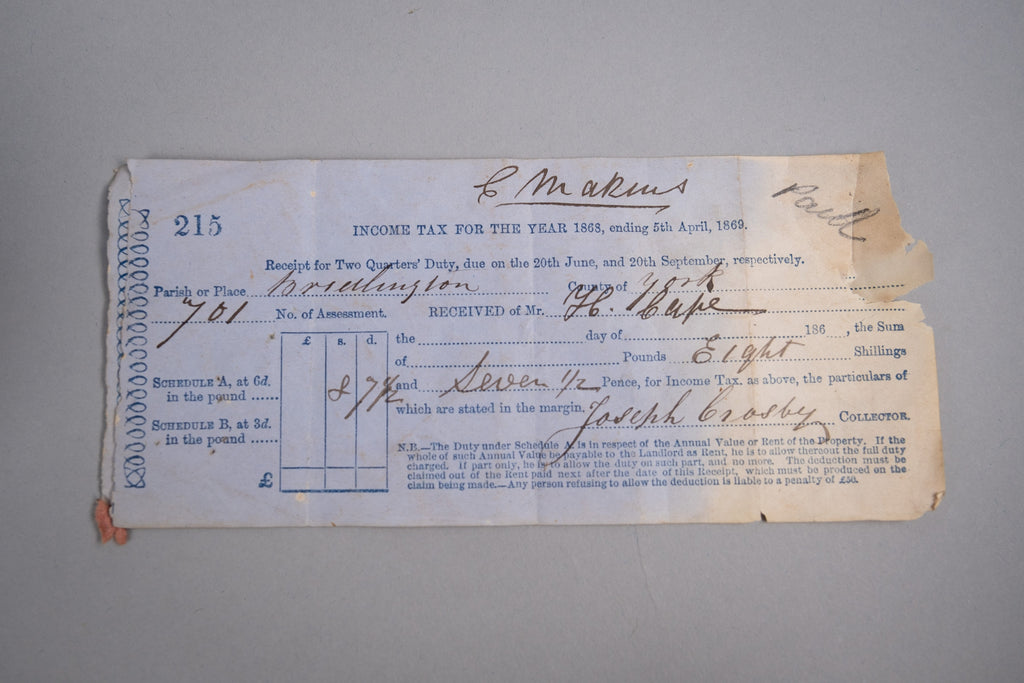 C Makins
Paid
215
INCOME TAX FOR THE YEAR 1868, ending 5th April, 1869.
Receipt for Two Quarters' Duty, due on the 20th June, and 20th September, respectively.
Parish or Place Bridlington County of York
701 No. of Assessment. RECEIVED of Mr. H. Cape
£ s. d. the day of 186 , the Sum
of Pounds Eight Shillings
SCHEDULE A, at 6d. in the pound ...... 8 7 1/2 and Seven 1/2 Pence, for Income Tax, as above, the particulars of
which are stated in the margin. Joseph Crosby COLLECTOR.
SCHEDULE B, at 3d.
in the pound ......
£
N.B.—The Duty under Schedule A. is in respect of the Annual Value or Rent of the Property. If the
whole of such Annual Value be payable to the Landlord as Rent, he is to allow thereout the full duty
charged. If part only, he is to allow the duty on such part, and no more. The deduction must be
claimed out of the Rent paid next after the date of this Receipt, which must be produced on the
claim being made.—Any person refusing to allow the deduction is liable to a penalty of £50.